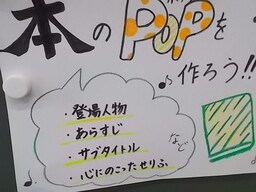 本のPOPを
作ろう!!
・登場人物
・あらすじ
・サブタイトル
・心にのこったせりふ
など